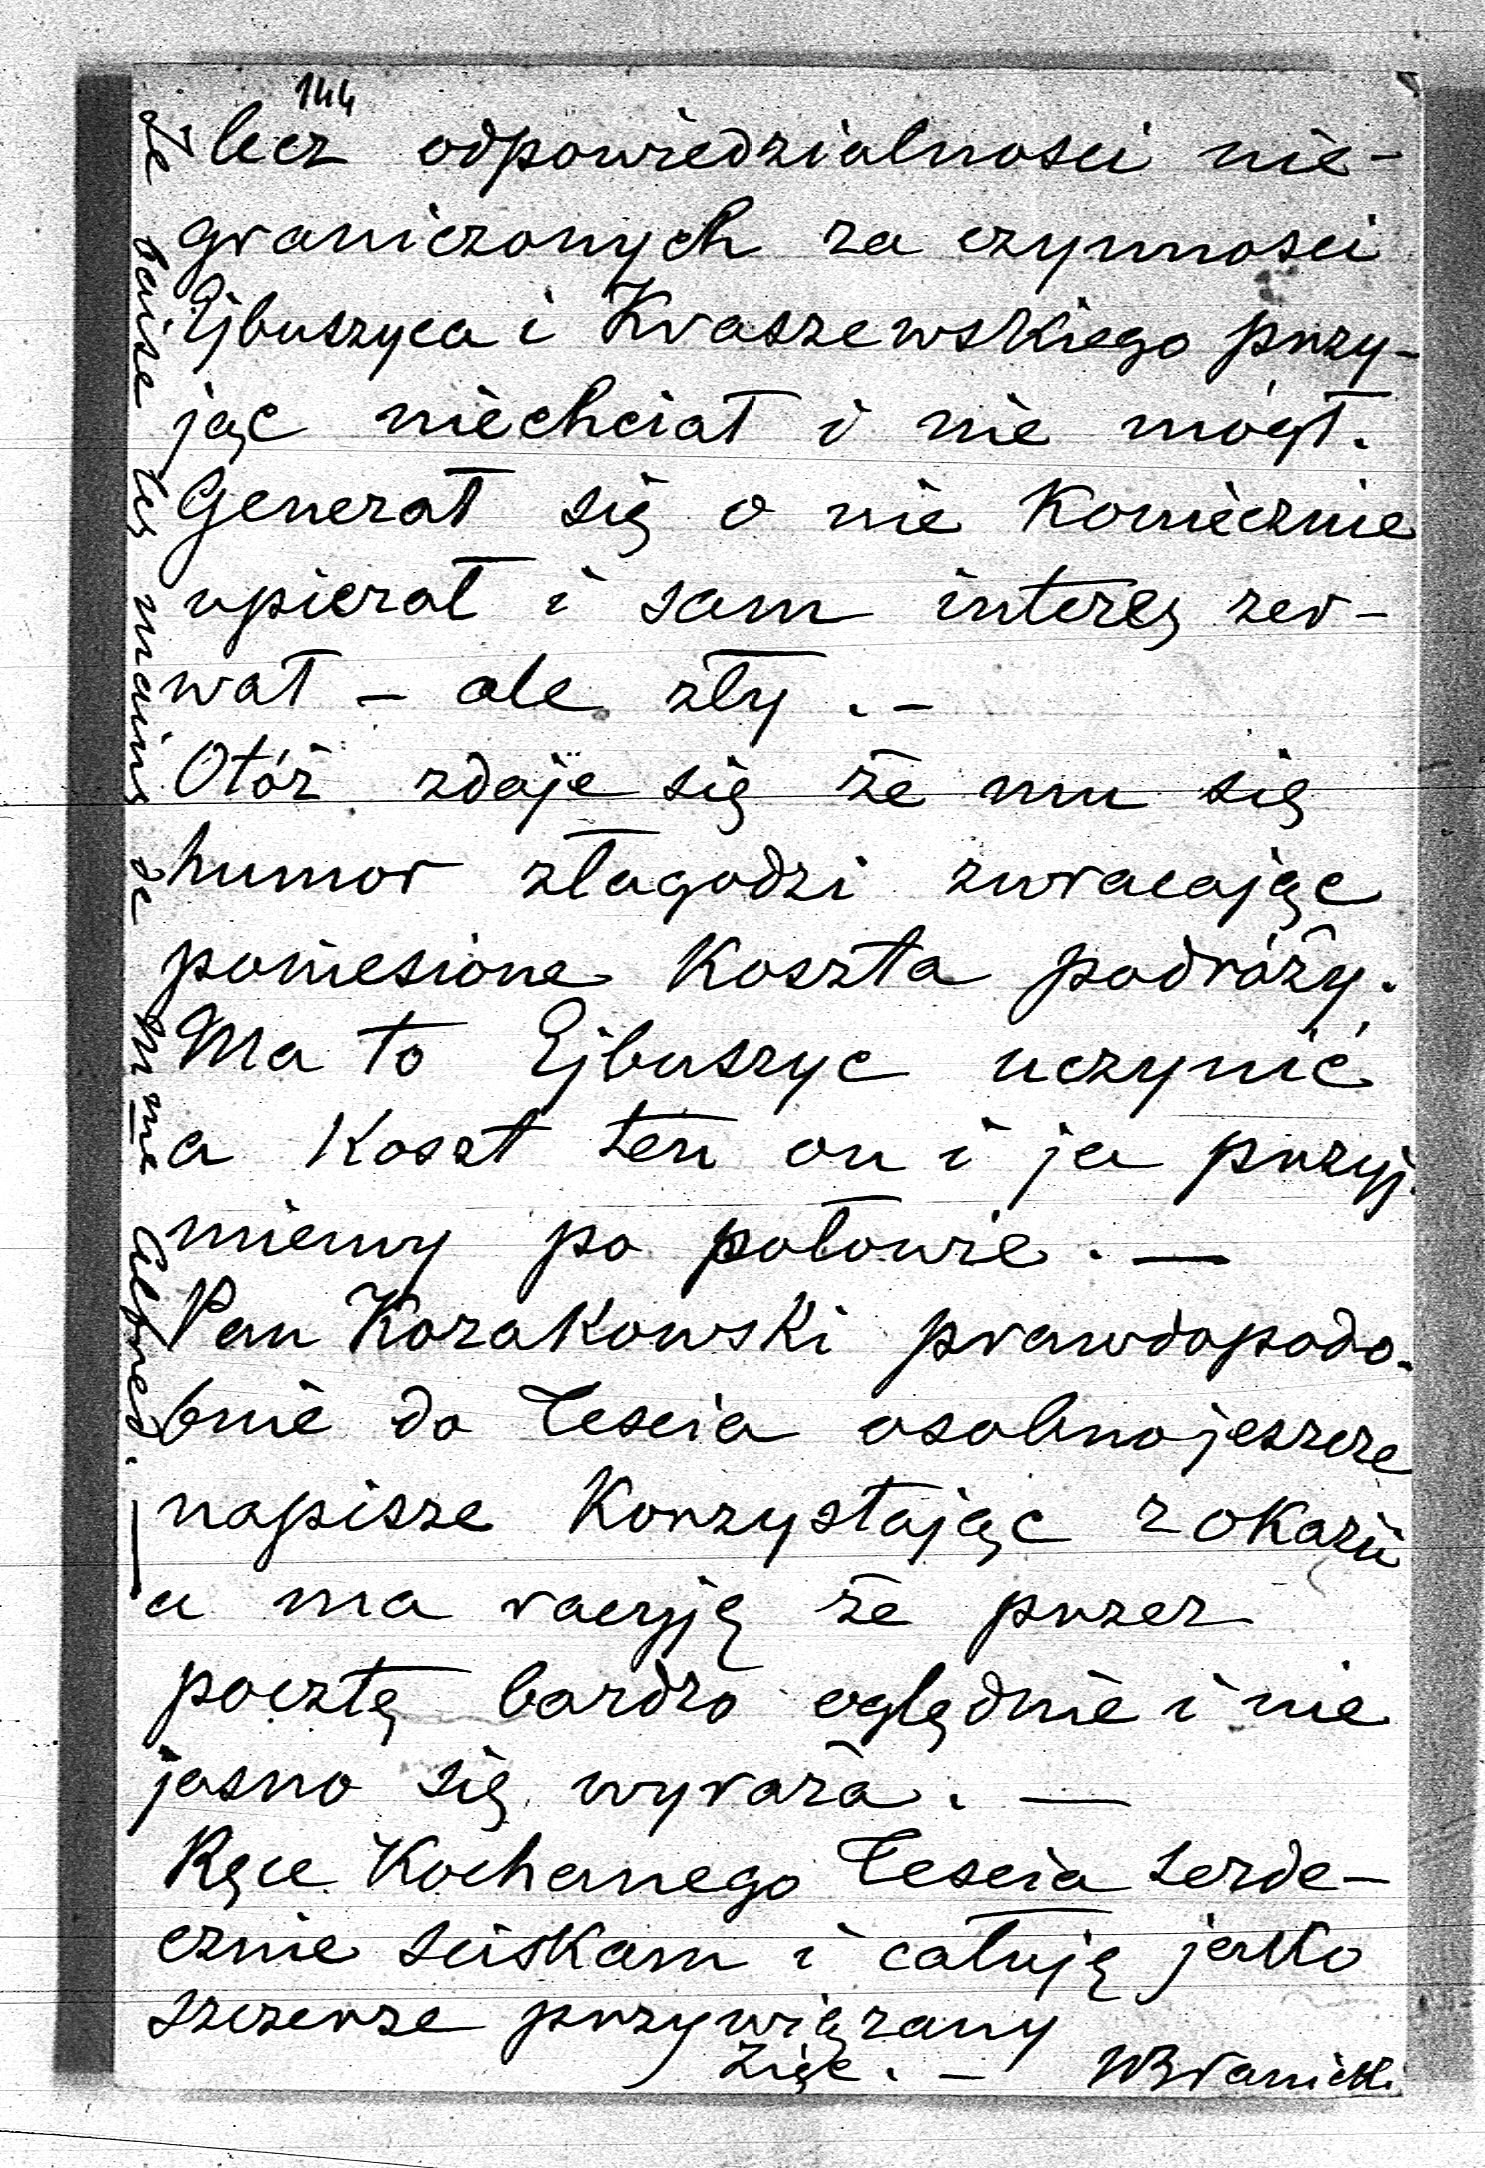 144
lecz odpowiedzialności nie-
graniczonych za czynności
Ejbuszyca i Kraszewskiego przy-
jąc niechciał i nie mógł.
Generał się o nie Koniecznie
upierał i sam interes zer-
wał – ale zły . –
Otóż zdaje się że mu się
humor złagodzi zwracając
poniesione Koszta podróży.
Ma to Ejbuszyc uczynić
a Koszt ten on i ja przyj-
miemy po połowie . —
Pan Kozakowski prawdopodo-
bnie do Teścia osobno jeszcze
napisze Korzystając z okazii
a ma racyję że przez
pocztę bardzo oględnie i nie
jasno się wyraża . —
Ręce Kochanego Teścia serde-
cznie ściskam i całuję jako
szczerze przywiązany
Zięć . – WBranicki
Je baise les mains de Mme